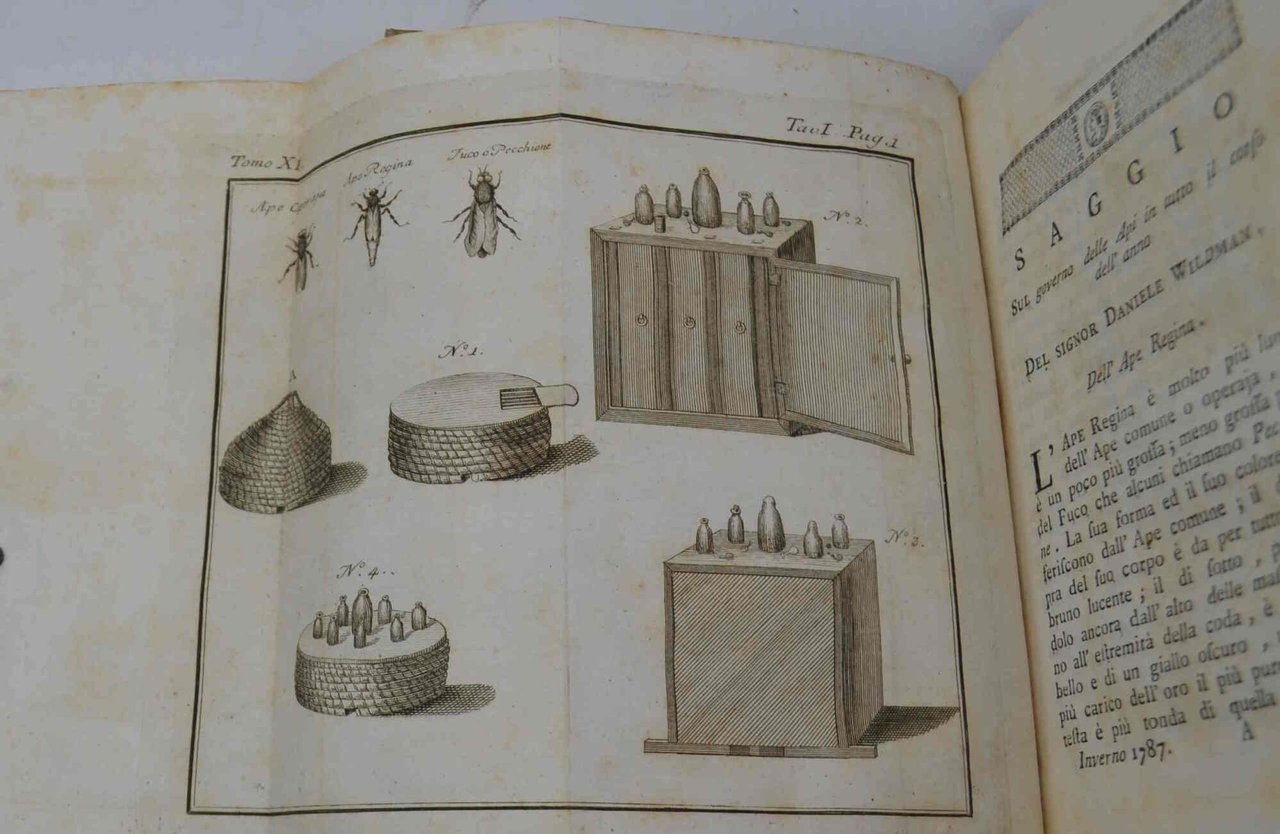 Tomo XI.
TavI. Pag.1
Ape Regina
Fuco o Pecchione
Ape
N.º 2.
N.º 1.
A
N.º 3.
N.º 4.
SAGGIO
Sul governo delle Api in tutto il corso
dell' anno
DEL SIGNOR DANIELE WILDMAN.
Dell' Ape Regina.
L' APE Regina è molto più
dell' Ape comune o operaja,
è un poco più groſſa; meno groſſa
del Fuco che alcuni chiamano
ne. La ſua forma ed il ſuo colore
feriſcono dall' Ape comune; il
pra del ſuo corpo è da per
bruno lucente; il di ſotto,
dolo ancora dall' alto delle
no all' eſtremità della coda, è
bello e di un giallo oſcuro,
più carico dell' oro il più
teſta è più tonda di quella
Inverno 1787. A